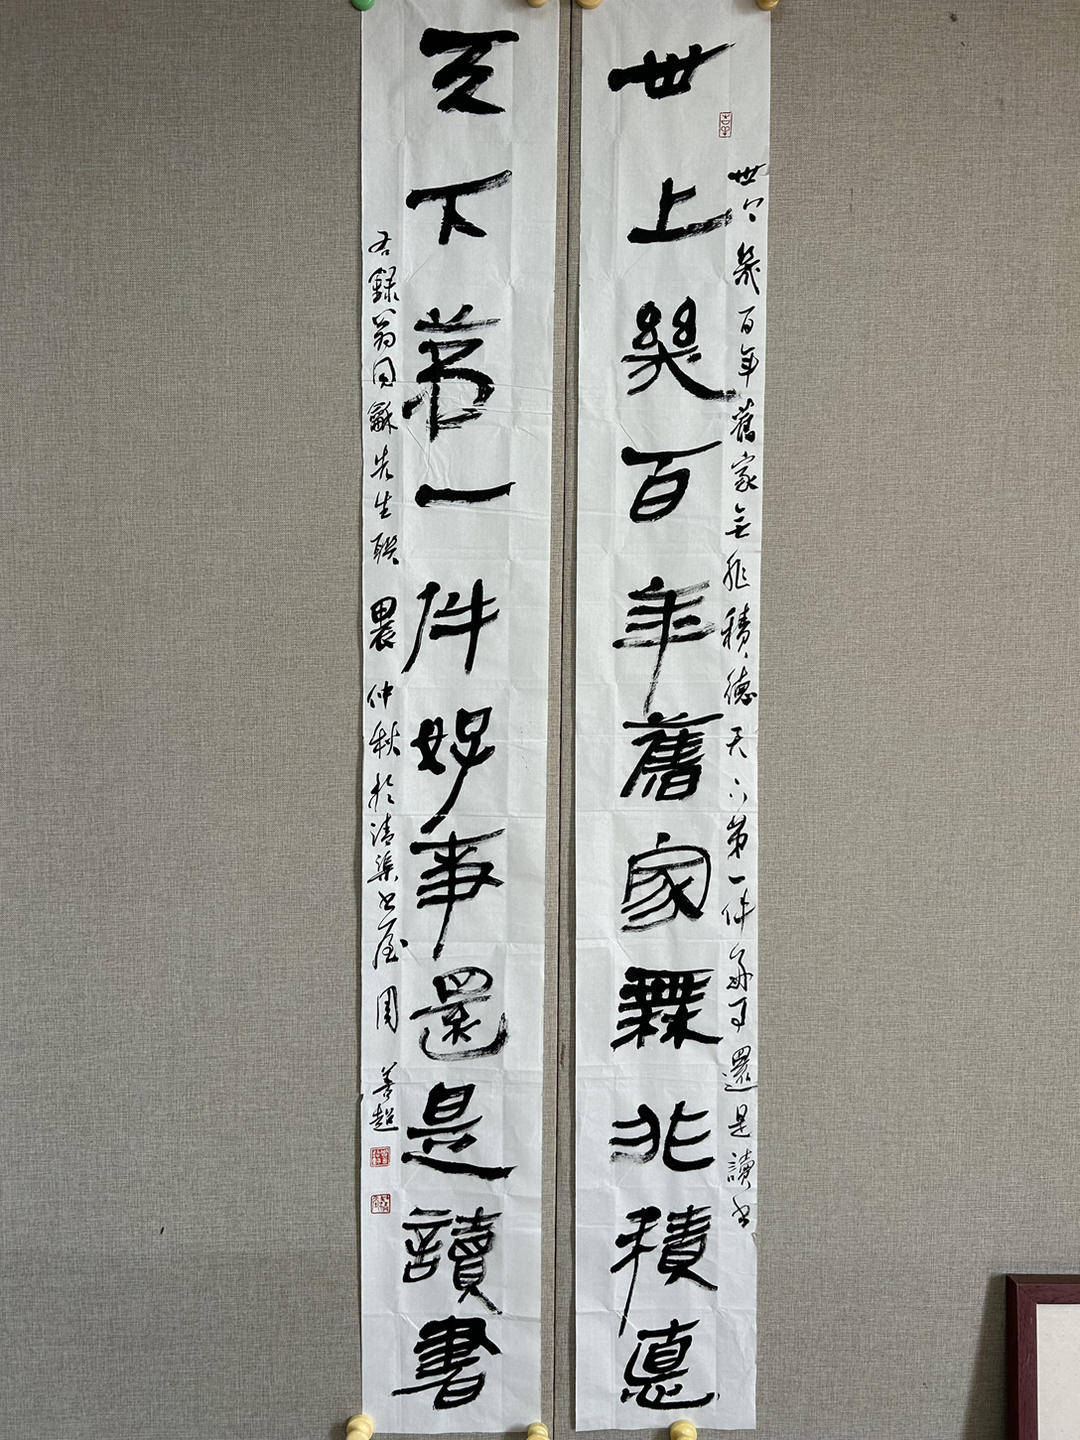 世上幾百年舊家無非積悳
世上幾百年舊家無非積德天下第一件好事還是讀書
天下第一件好事還是讀書
右錄翁同龢先生聯 仲秋於清渠書屋 周善超